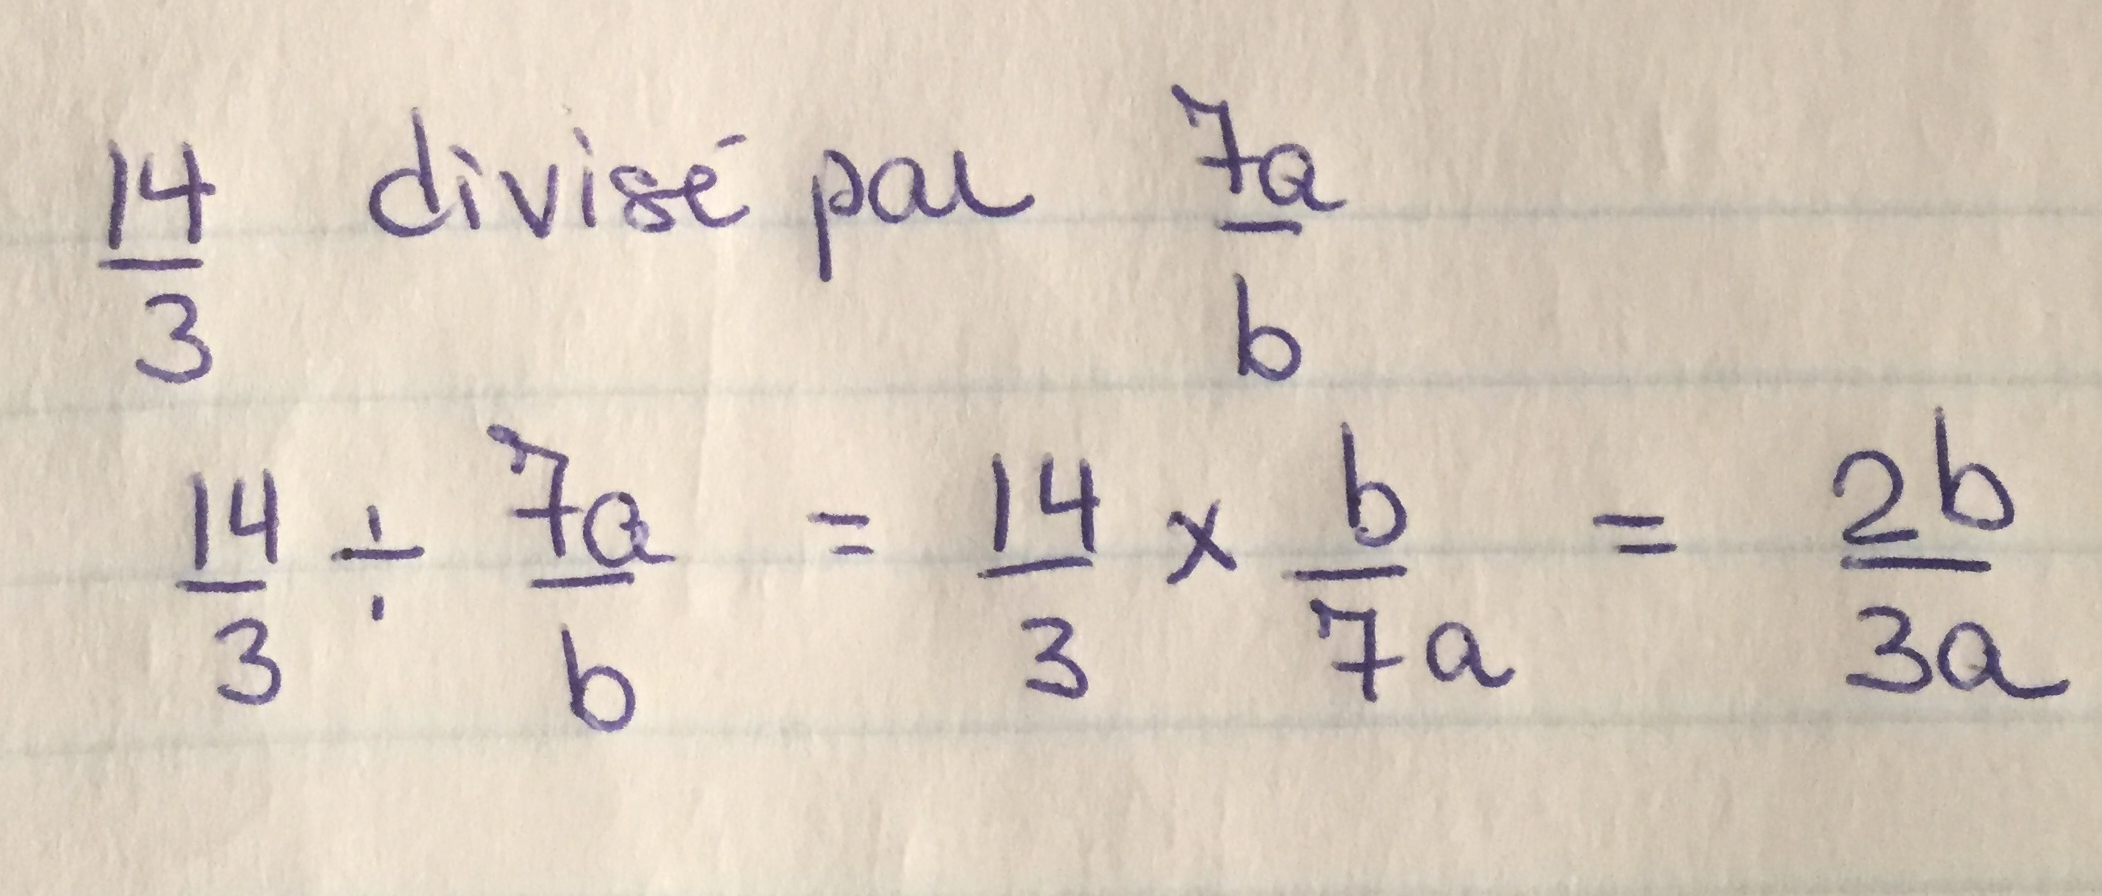 14/3 divisé par 7a/b
14/3 ÷ 7a/b = 14/3 × b/7a = 2b/3a